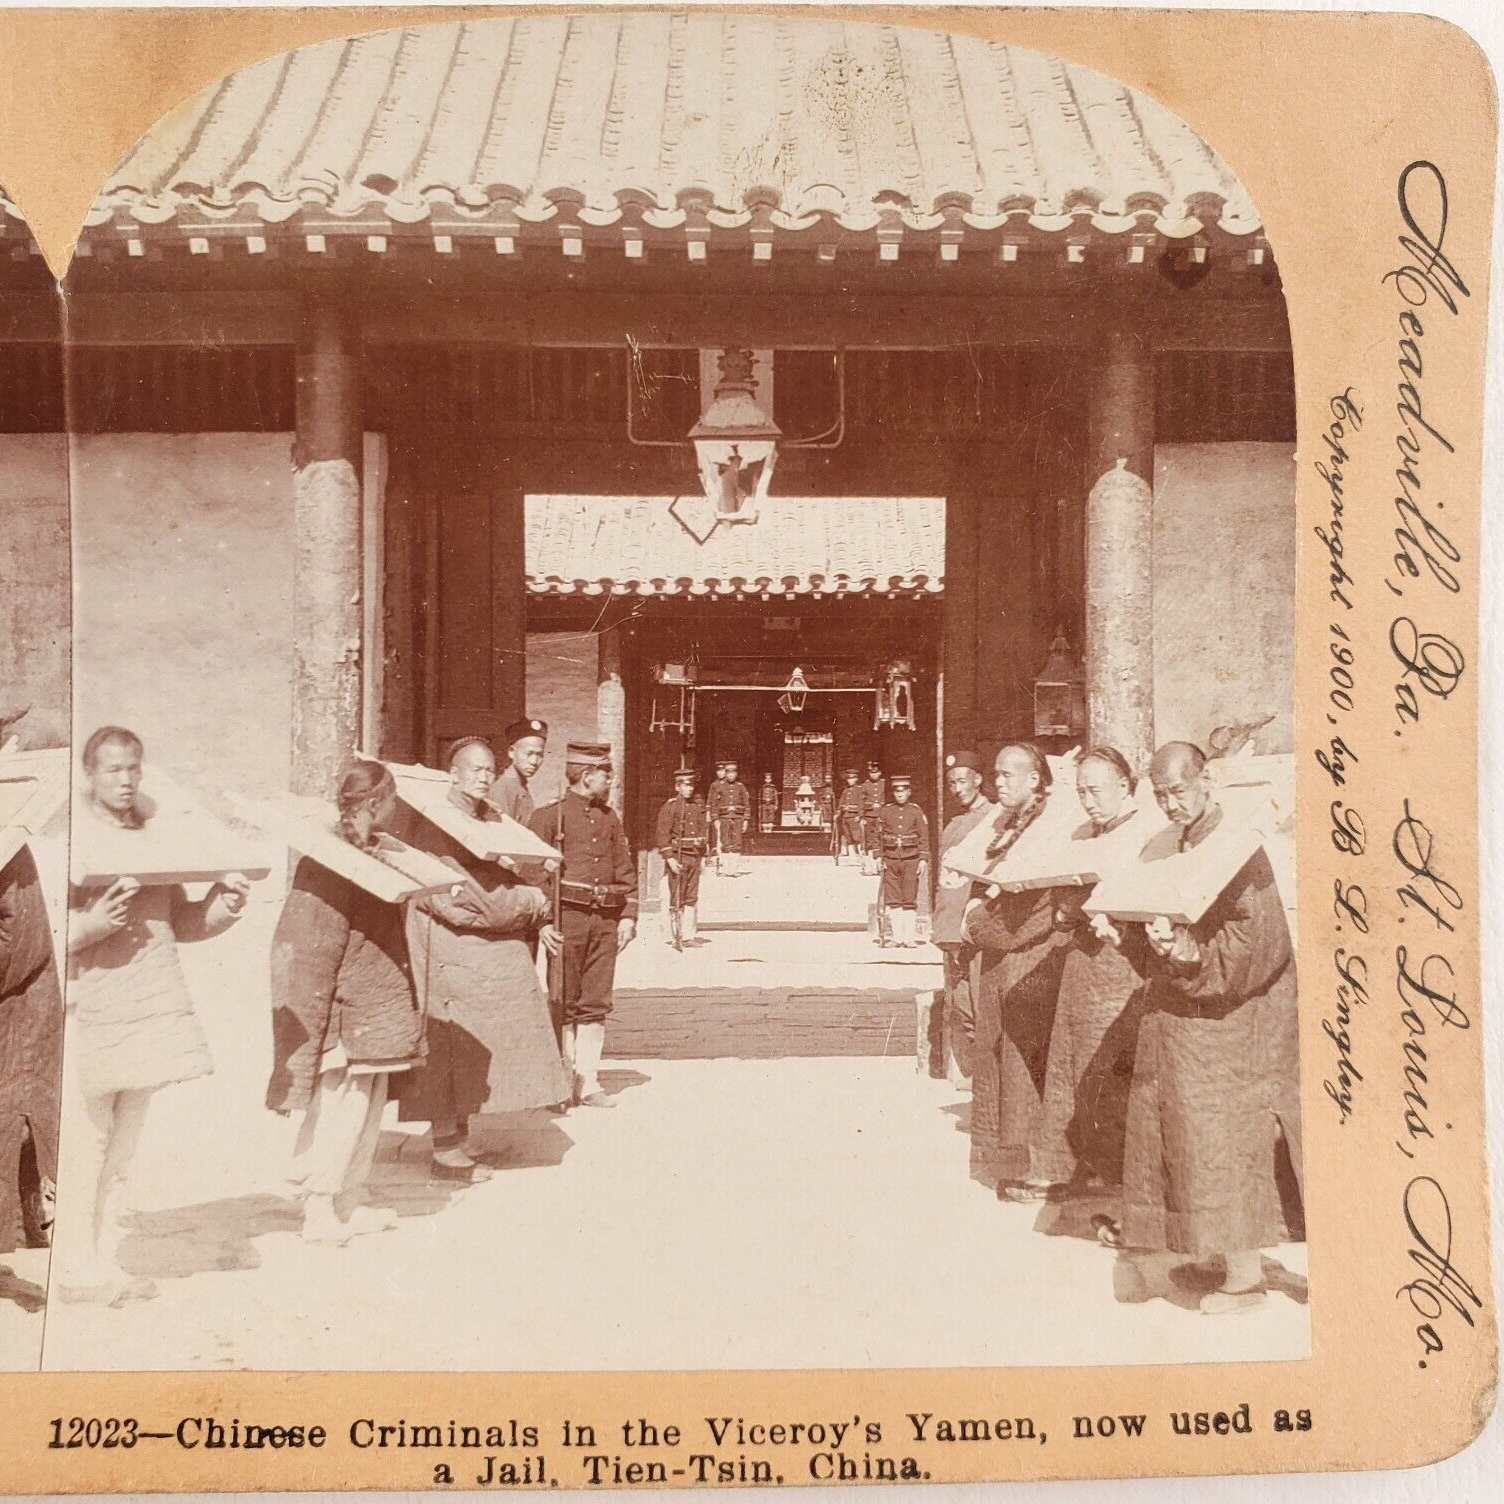 12023—Chinese Criminals in the Viceroy's Yamen, now used as
a Jail, Tien-Tsin, China.
Copyright 1900, by B L. Singley.
Meadville, Pa. St. Louis, Mo.